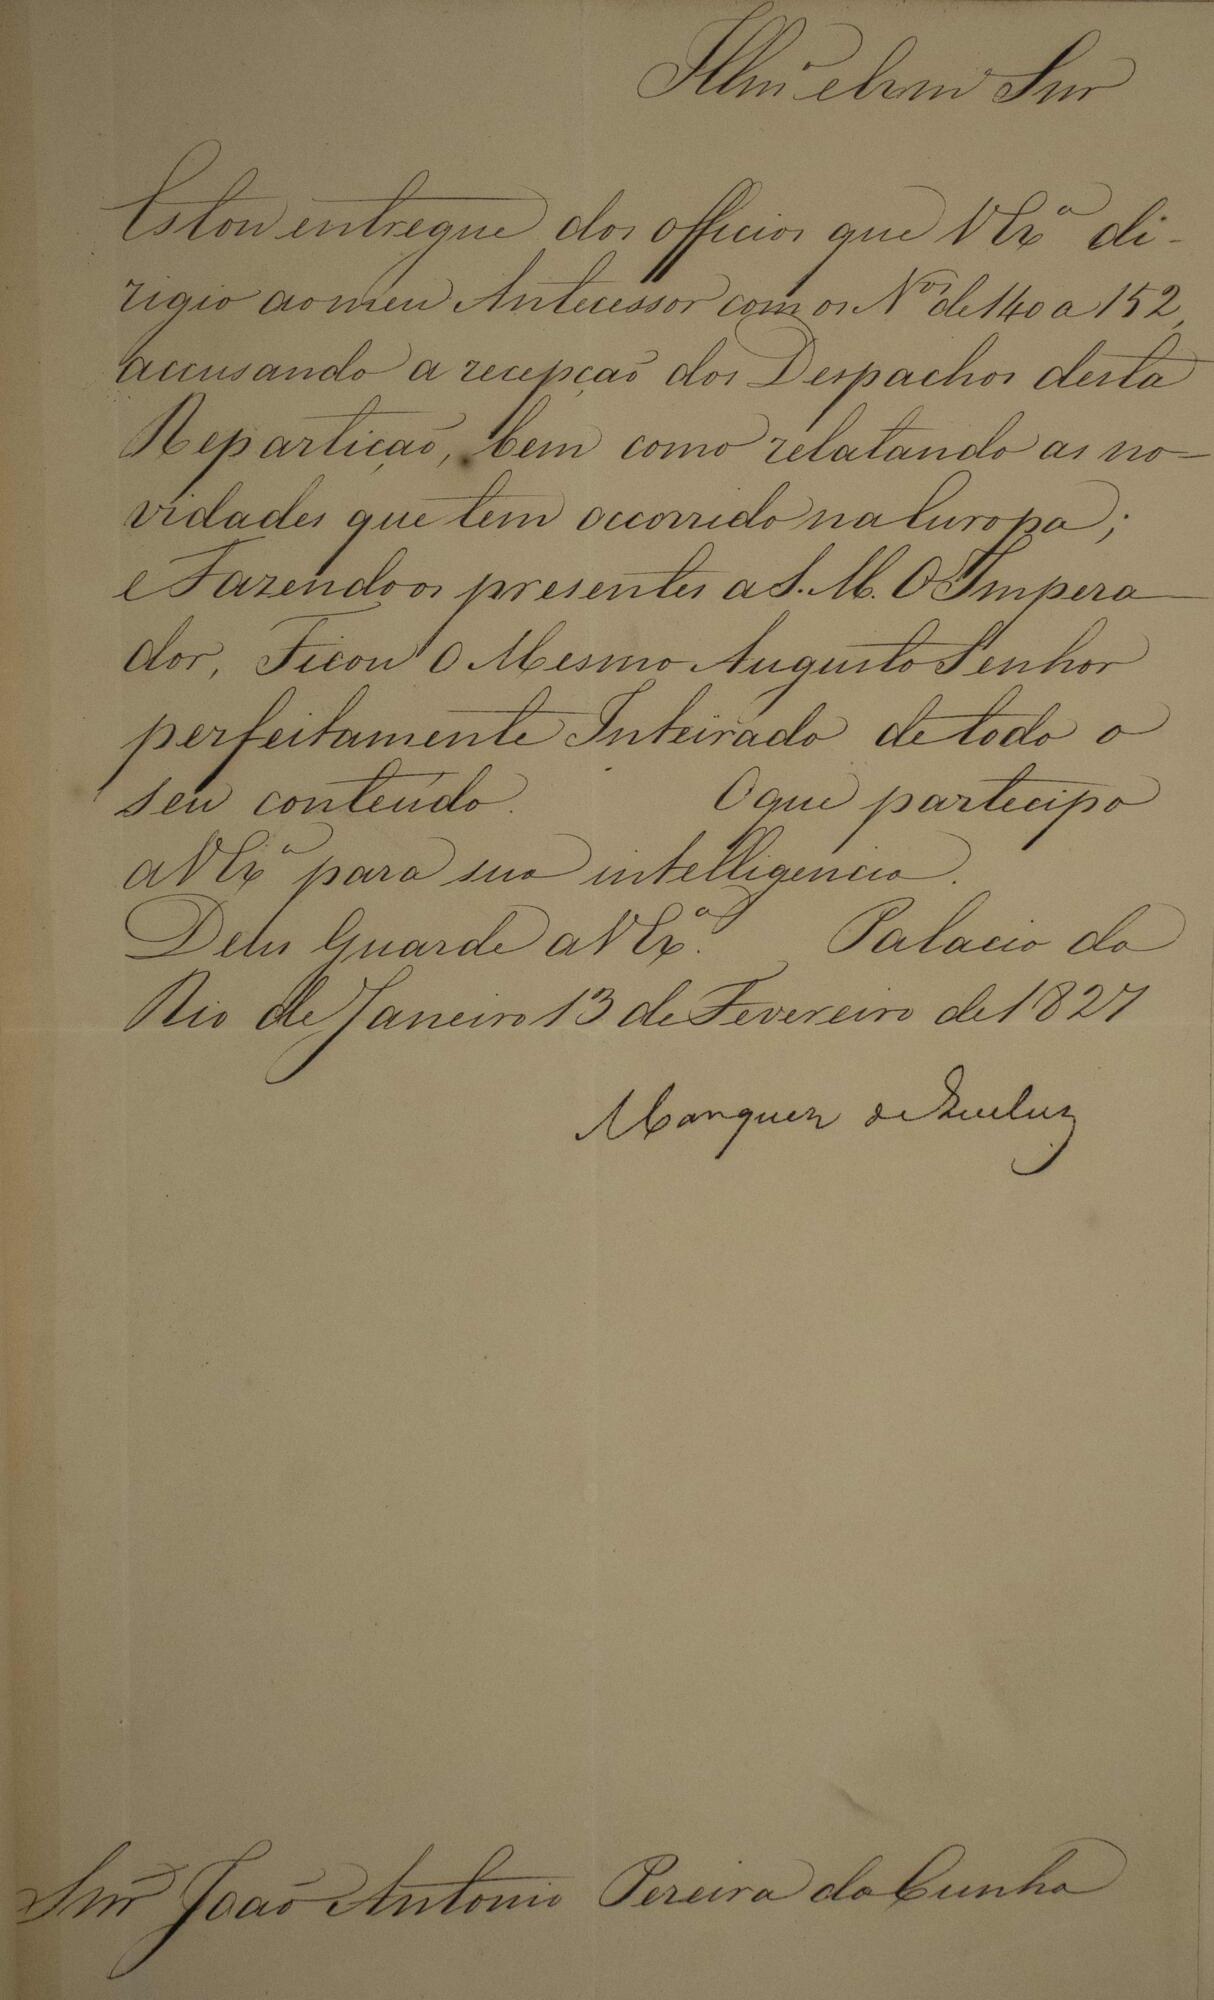 Illmº e Exmº Snr
Estou entregue dos officios que VExª di-
rigio ao meu Antecessor com os Nos de 140 a 152,
accusando a recepção dos Despachos desta
Repartição, bem como relatando as no-
vidades que tem occorrido na Europa;
e Fazendo os presentes a S. M. O Impera-
dor, Ficou O Mesmo Augusto Senhor
perfeitamente Inteirado de todo o
seu conteúdo. O que partecipo
a VExª para sua intelligencia.
Deus Guarde a VExª. Palacio do
Rio de Janeiro 13 de Fevereiro de 1827
Marquez de Queluz
Snr João Antonio Pereira da Cunha